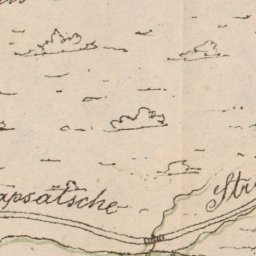 äpsätsche
Str